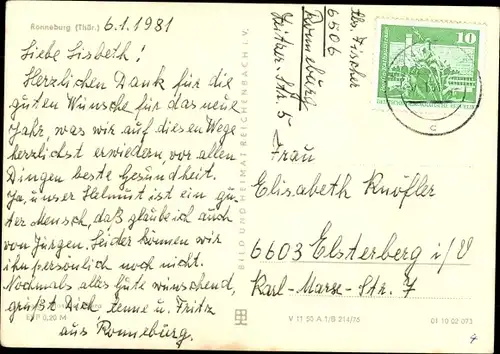 Ronneburg (Thür.)
6.1.1981
Liebe Lisbeth!
Herzlichen Dank für die
guten Wünsche für das neue
Jahr, was wir auf diesen Wege
herzlichst erwiedern, vor allen
Dingen beste Gesundheit.
Ja, unser Helmut ist ein gu-
ter Mensch, daß glaube ich auch
von Jürgen. Leider können wir
ihn persönlich noch nicht.
Nochmals alles Gute wünschend,
grüßt Dich, u. Fritz
aus Ronneburg.
0,20 M
BILD UND HEIMAT REICHENBACH I. V.
Abs. Fischer
6506
Ronneburg
Zeitzer-Str. 5
10
Frau
Elisabeth Knöfler
6603 Elsterberg i/V
Karl-Marx-Str. 7
V 11 50 A 1/B 214/75
01 10 02 073